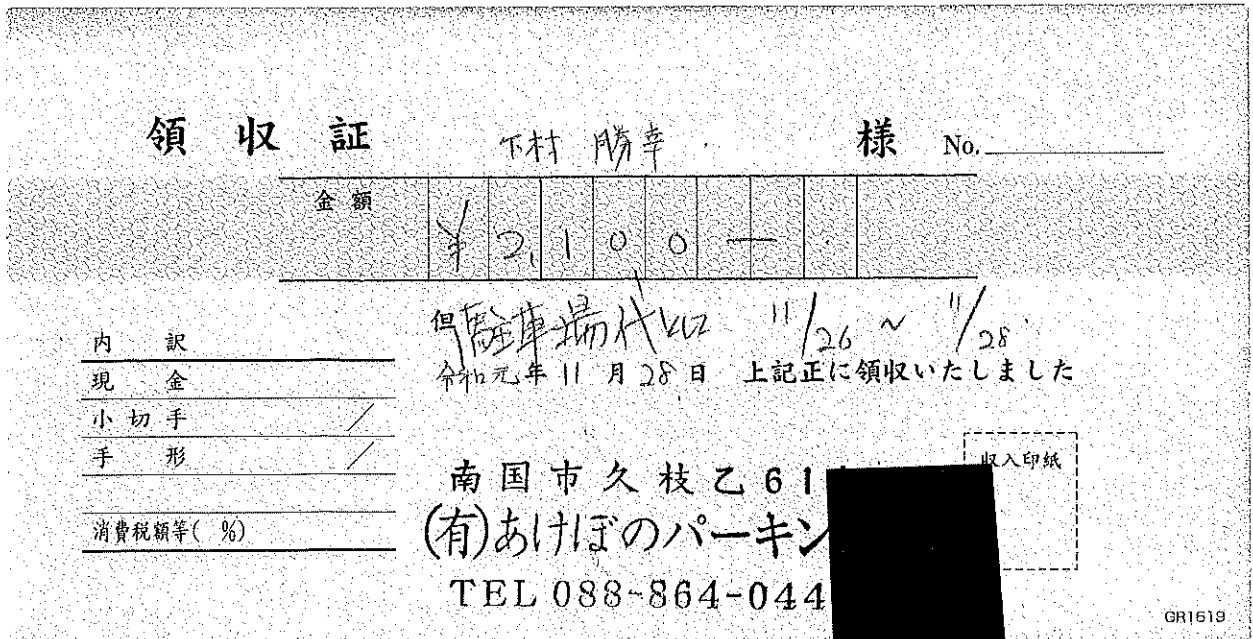 領収証 下村 勝幸 様 No.
金額 ¥2,100―
但 駐車場代として 11/26 ~ 11/28
令和元年11月28日 上記正に領収いたしました
内訳
現金
小切手 /
手形 /
消費税額等( %)
南国市久枝乙61
(有)あけぼのパーキン
TEL 088-864-044
収入印紙
GR1619